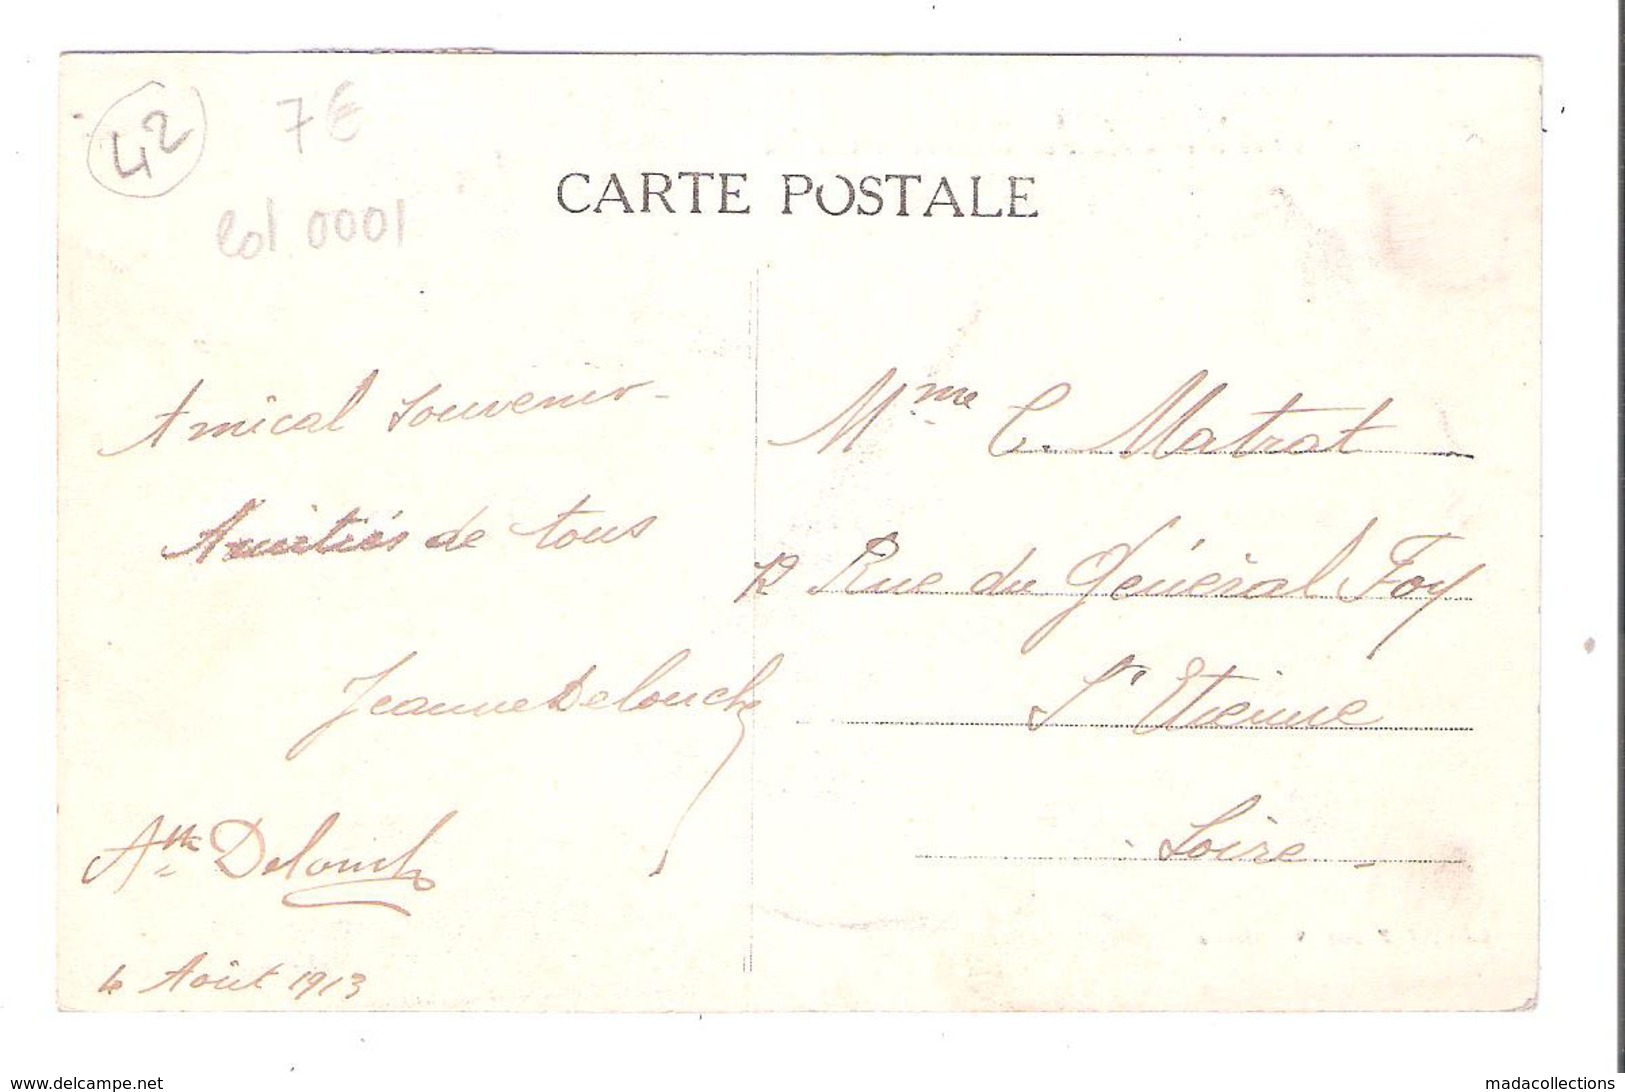 42
7€
Col 0001
CARTE POSTALE
Amical souvenir -
Amitiés de tous
Jeanne Delouche
Delouche
4 Août 1913
Mme C. Matrat
12 Rue du Général Foy
St Etienne
Loire -
www.delcampe.net
madacollections